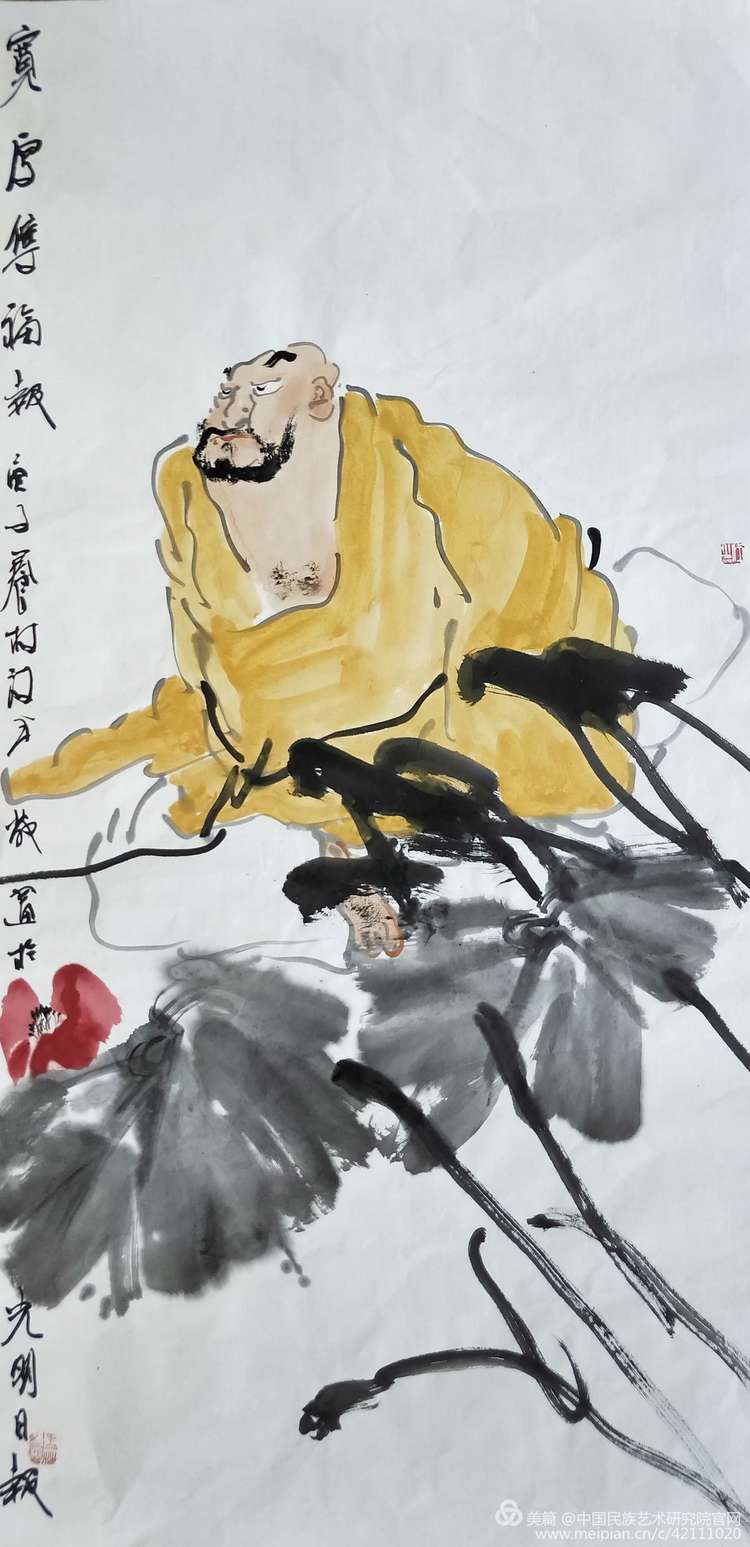 寬厚福報庚子村敬畫於
光明日報
美篇 @中国民族艺术研究院官网
www.meipian.cn/c/42111020